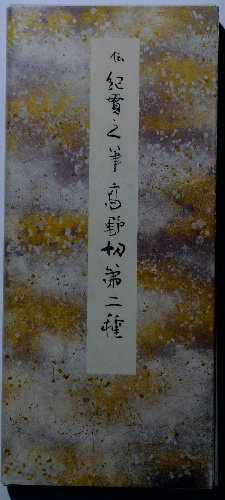 伝 紀貫之筆 高野切第二種